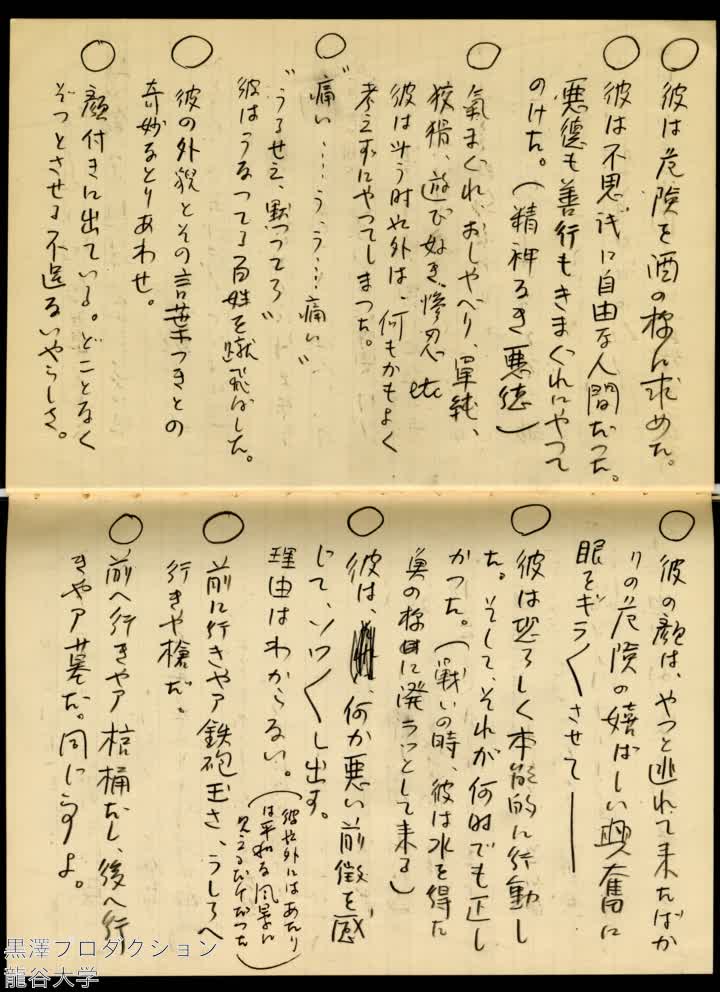 ○ 彼は危険を酒の様に求めた。
○ 彼は不思議に自由な人間だった。
悪徳も善行もきまぐれにやって
のけた。(精神なき悪徳)
○ 氣まぐれ、おしゃべり、單純、
狡猾、遊び好き、惨忍 etc
彼は斗う時以外は、何もかもよく
考えずにやってしまった。
○ “痛い……う、う……痛い”
“うるせえ、黙ってろ”
彼はうなってる百姓を蹴飛ばした。
○ 彼の外貌とその言葉つきとの
奇妙なとりあわせ。
○ 顔付きに出ている。どことなく
ぞっとさせる不遜ないやらしさ。
○ 彼の顔は、やっと逃れて来たばか
りの危険の嬉ばしい興奮に
眼をギラ〱させて――
○ 彼は恐ろしく本能的に行動し
た。そして、それが何時でも正し
かった。(戰いの時、彼は水を得た
魚の様に溌ラツとして来る)
○ 彼は、何か悪い前徴を感
じて、ソワ〱し出す。
理由はわからない。(彼以外にはあたり
は平和な風景に
見えるだけだった)
○ 前に行きやア鉄砲玉さ、うしろへ
行きや槍だ。
○ 前へ行きやア棺桶なし、後へ行
きやア墓だ。同じ事よ。
黒澤プロダクション
龍谷大学